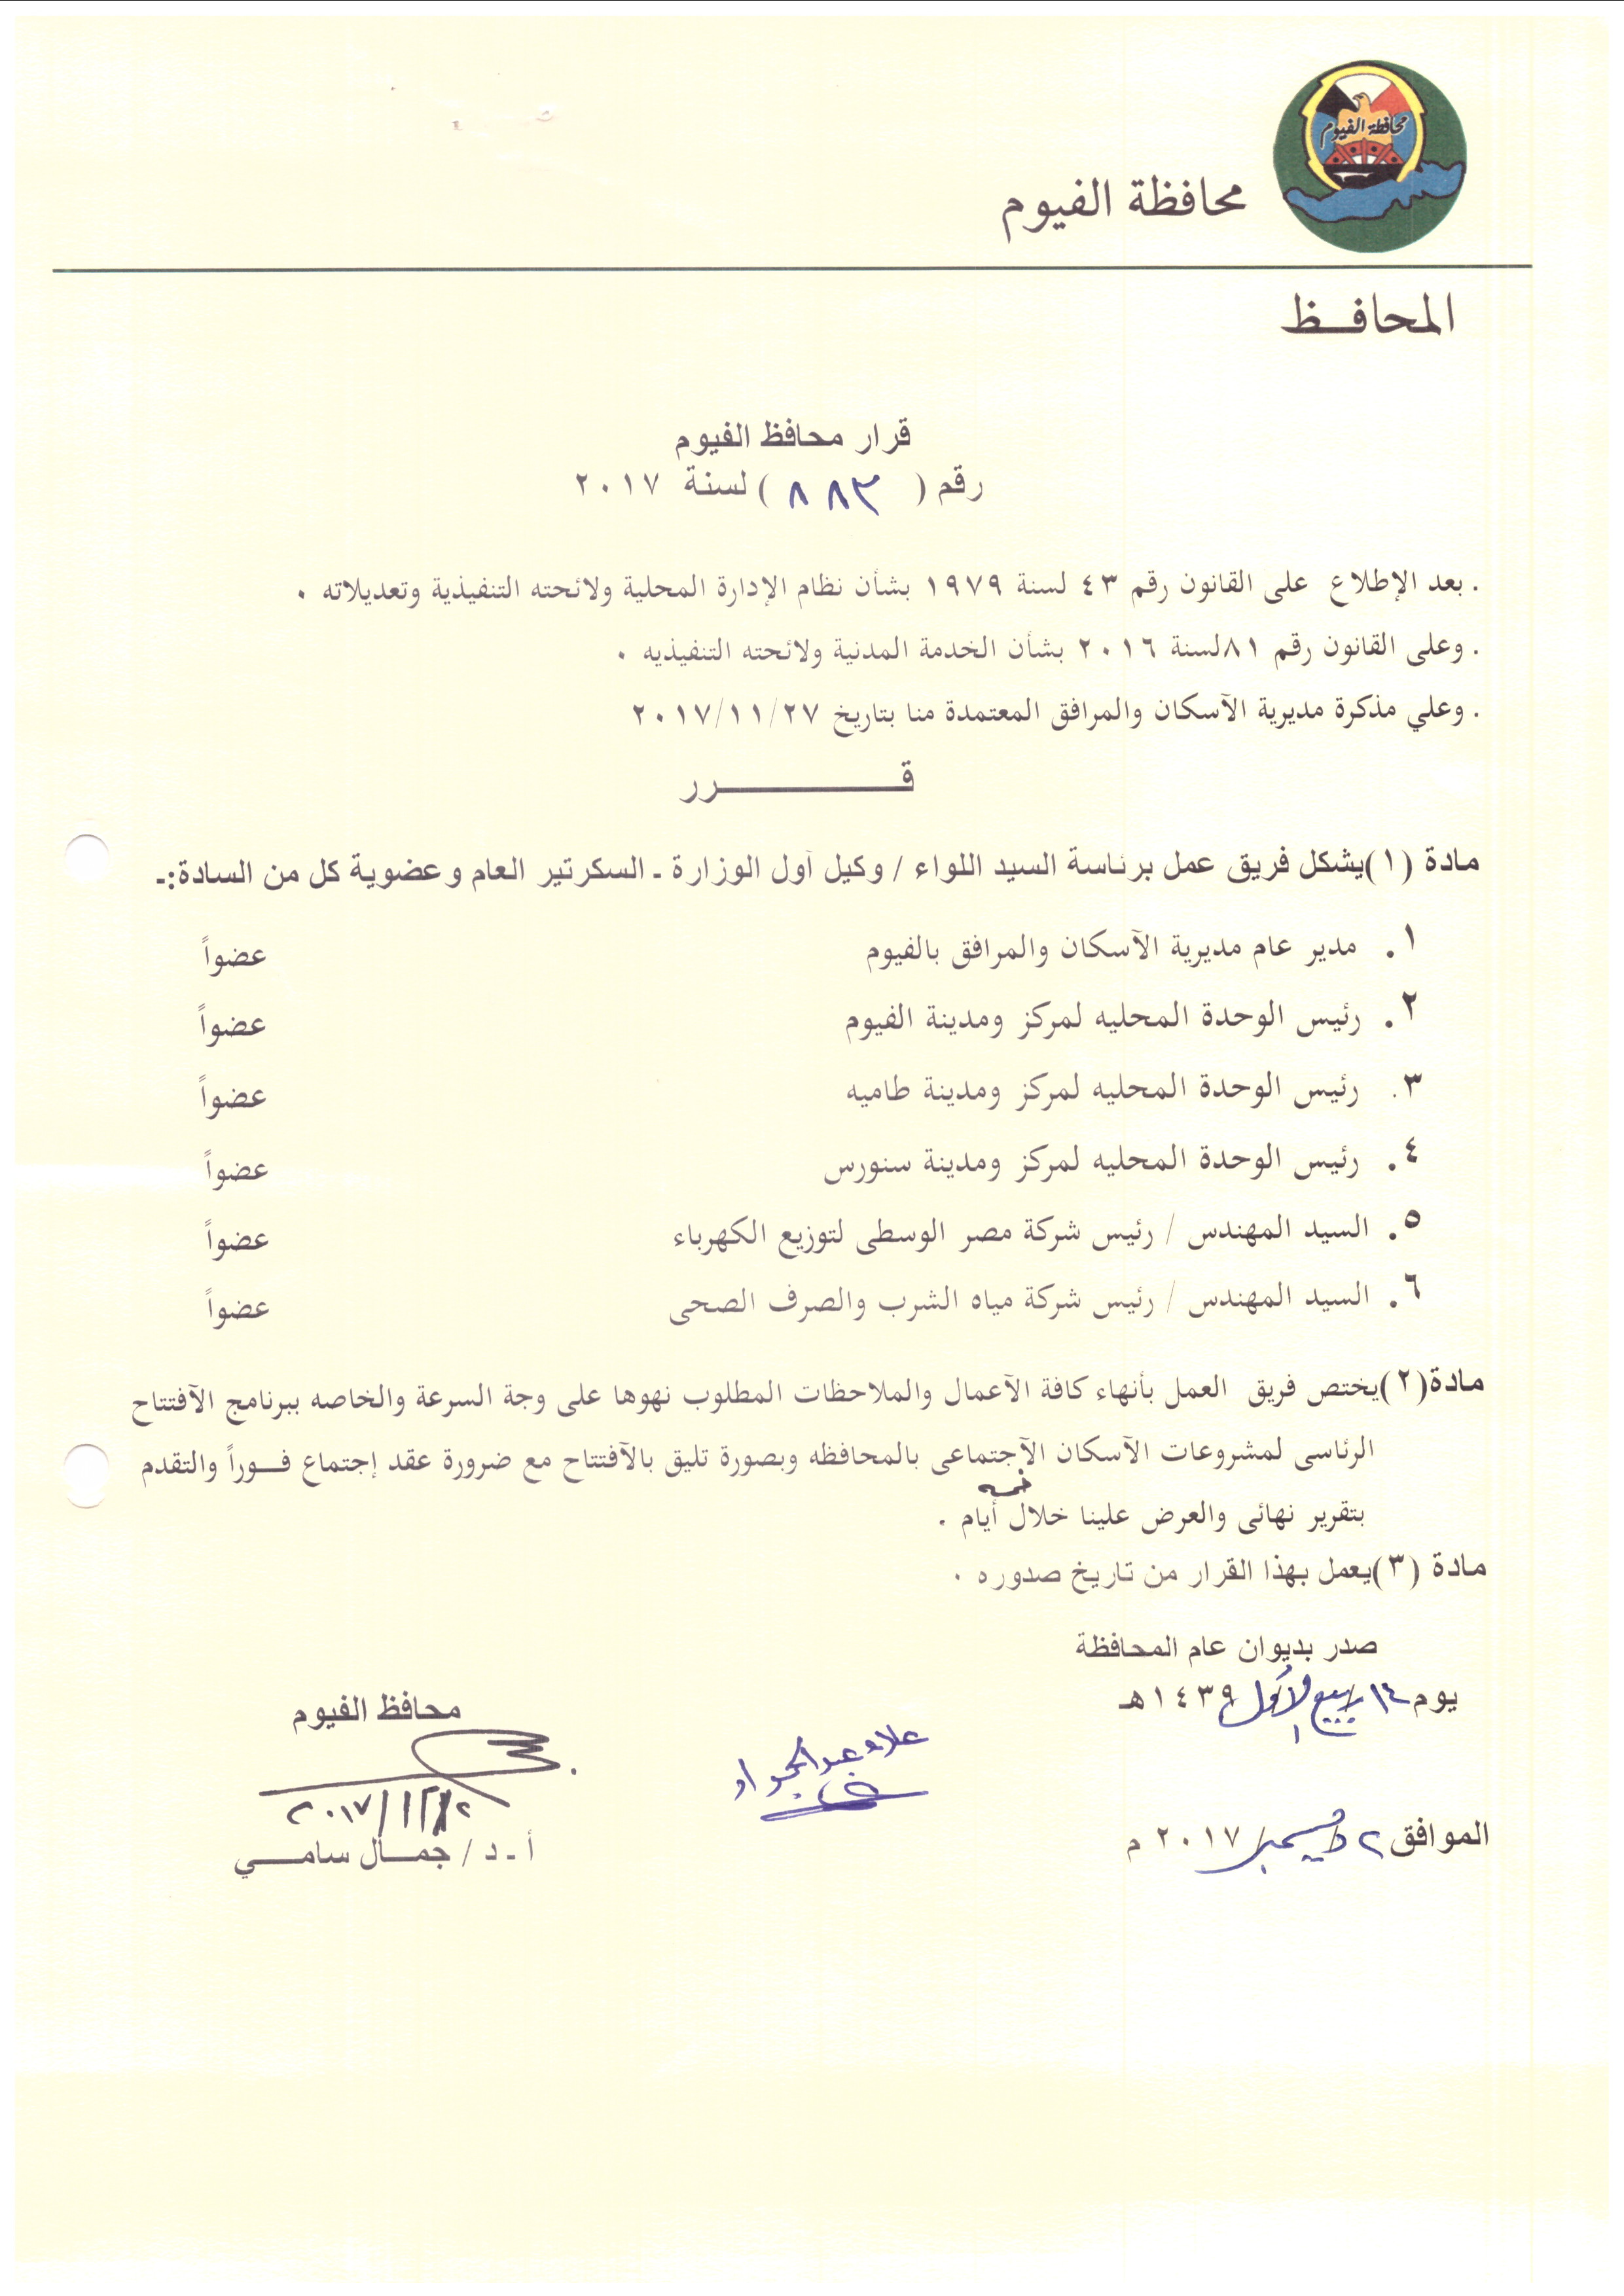 محافظة الفيوم
محافظة الفيوم
المحافـــظ
قرار محافظ الفيوم
رقم ( ٨٨٣ ) لسنة ٢٠١٧
. بعد الإطلاع على القانون رقم ٤٣ لسنة ١٩٧٩ بشأن نظام الإدارة المحلية ولائحته التنفيذية وتعديلاته .
. وعلى القانون رقم ٨١لسنة ٢٠١٦ بشأن الخدمة المدنية ولائحته التنفيذيه .
. وعلي مذكرة مديرية الآسكان والمرافق المعتمدة منا بتاريخ ٢٠١٧/١١/٢٧
قــــــــــــرر
مادة (١)يشكل فريق عمل برئاسة السيد اللواء / وكيل آول الوزارة ـ السكرتير العام وعضوية كل من السادة:ـ
١. مدير عام مديرية الآسكان والمرافق بالفيوم عضواً
٢. رئيس الوحدة المحليه لمركز ومدينة الفيوم عضواً
٣. رئيس الوحدة المحليه لمركز ومدينة طاميه عضواً
٤. رئيس الوحدة المحليه لمركز ومدينة سنورس عضواً
٥. السيد المهندس / رئيس شركة مصر الوسطى لتوزيع الكهرباء عضواً
٦. السيد المهندس / رئيس شركة مياه الشرب والصرف الصحى عضواً
مادة(٢)يختص فريق العمل بأنهاء كافة الآعمال والملاحظات المطلوب نهوها على وجة السرعة والخاصه ببرنامج الآفتتاح
الرئاسى لمشروعات الآسكان الآجتماعى بالمحافظه وبصورة تليق بالآفتتاح مع ضرورة عقد إجتماع فـــوراً والتقدم
بتقرير نهائى والعرض علينا خلال خمسه أيام .
مادة (٣)يعمل بهذا القرار من تاريخ صدوره .
صدر بديوان عام المحافظة
يوم ١٤ ربيع الأول ١٤٣٩هـ
محافظ الفيوم
علاء عبد الجواد
٢٠١٧/١٢/٢
الموافق ٢ ديسمبر ٢٠١٧ م
أ ـ د / جمـــال سامـــي